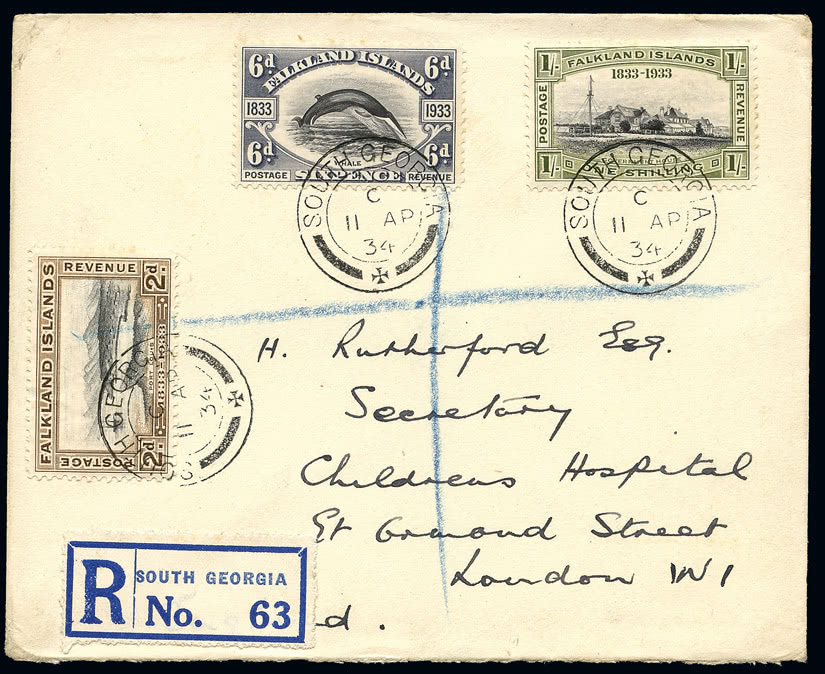 6d 6d
FALKLAND ISLANDS
1833 1933
6d 6d
WHALE
POSTAGE SIXPENCE REVENUE
1/- 1/-
FALKLAND ISLANDS
1833-1933
POSTAGE
REVENUE
GOVERNMENT HOUSE
1/- ONE SHILLING 1/-
SOUTH GEORGIA
C
11 AP
34
SOUTH GEORGIA
C
11 AP
34
REVENUE 2d
FALKLAND ISLANDS
PORT LOUIS
1833-1933
POSTAGE 2d
SOUTH GEORGIA
C
11 AP
34
H. Rutherford Esq.
Secretary
Childrens Hospital
Gt Ormond Street
London W1
d.
R SOUTH GEORGIA
No. 63